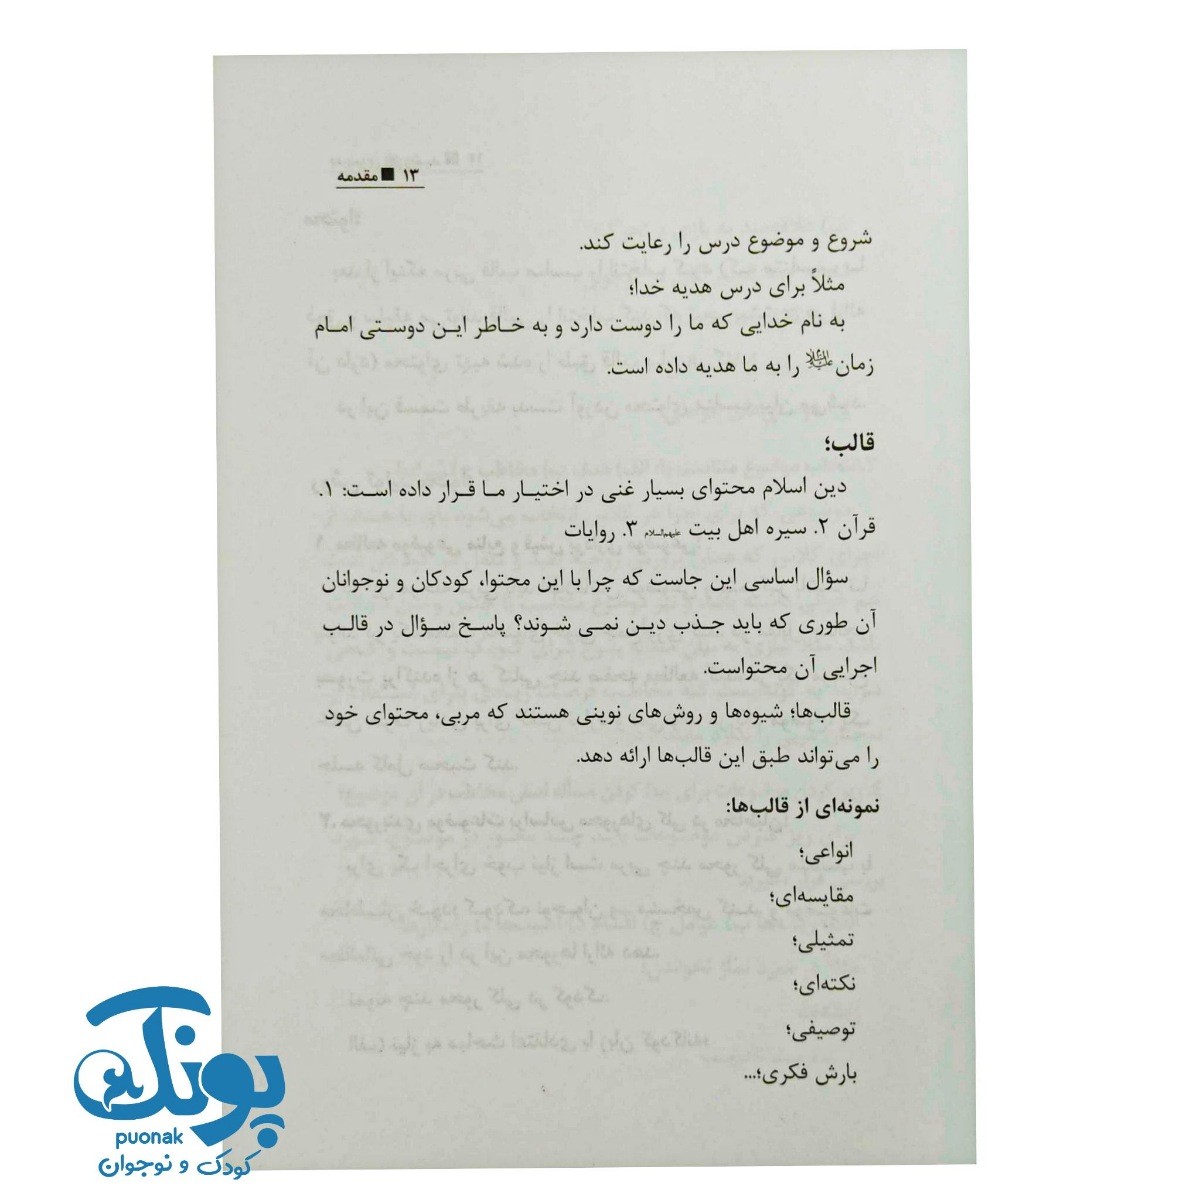 ۱۳ ■ مقدمه
شروع و موضوع درس را رعایت کند.
مثلاً برای درس هدیه خدا؛
به نام خدایی که ما را دوست دارد و به خاطر این دوستی امام
زمان علیه‌السلام را به ما هدیه داده است.
قالب؛
دین اسلام محتوای بسیار غنی در اختیار ما قرار داده است: ۱.
قرآن ۲. سیره اهل بیت علیهم‌السلام ۳. روایات
سؤال اساسی این جاست که چرا با این محتوا، کودکان و نوجوانان
آن طوری که باید جذب دین نمی شوند؟ پاسخ سؤال در قالب
اجرایی آن محتواست.
قالب‌ها؛ شیوه‌ها و روش‌های نوینی هستند که مربی، محتوای خود
را می‌تواند طبق این قالب‌ها ارائه دهد.
نمونه‌ای از قالب‌ها:
انواعی؛
مقایسه‌ای؛
تمثیلی؛
نکته‌ای؛
توصیفی؛
بارش فکری؛...
پونک
puonak
کودک و نوجوان